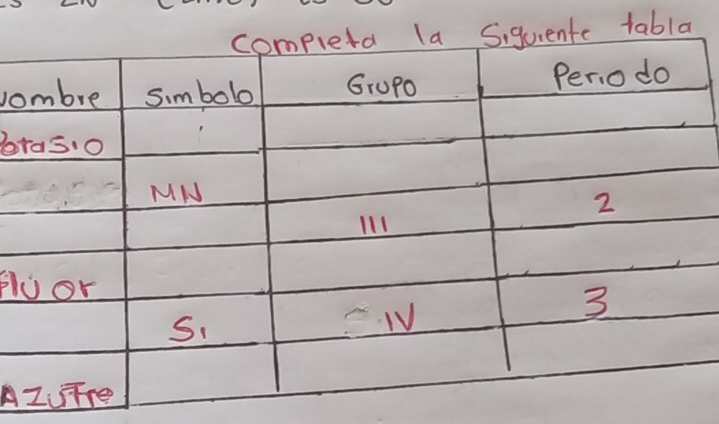 completa la Siguiente tabla
Nombre Simbolo Grupo Periodo
Potasio
MN
III 2
Fluor
Si IV 3
AZufre